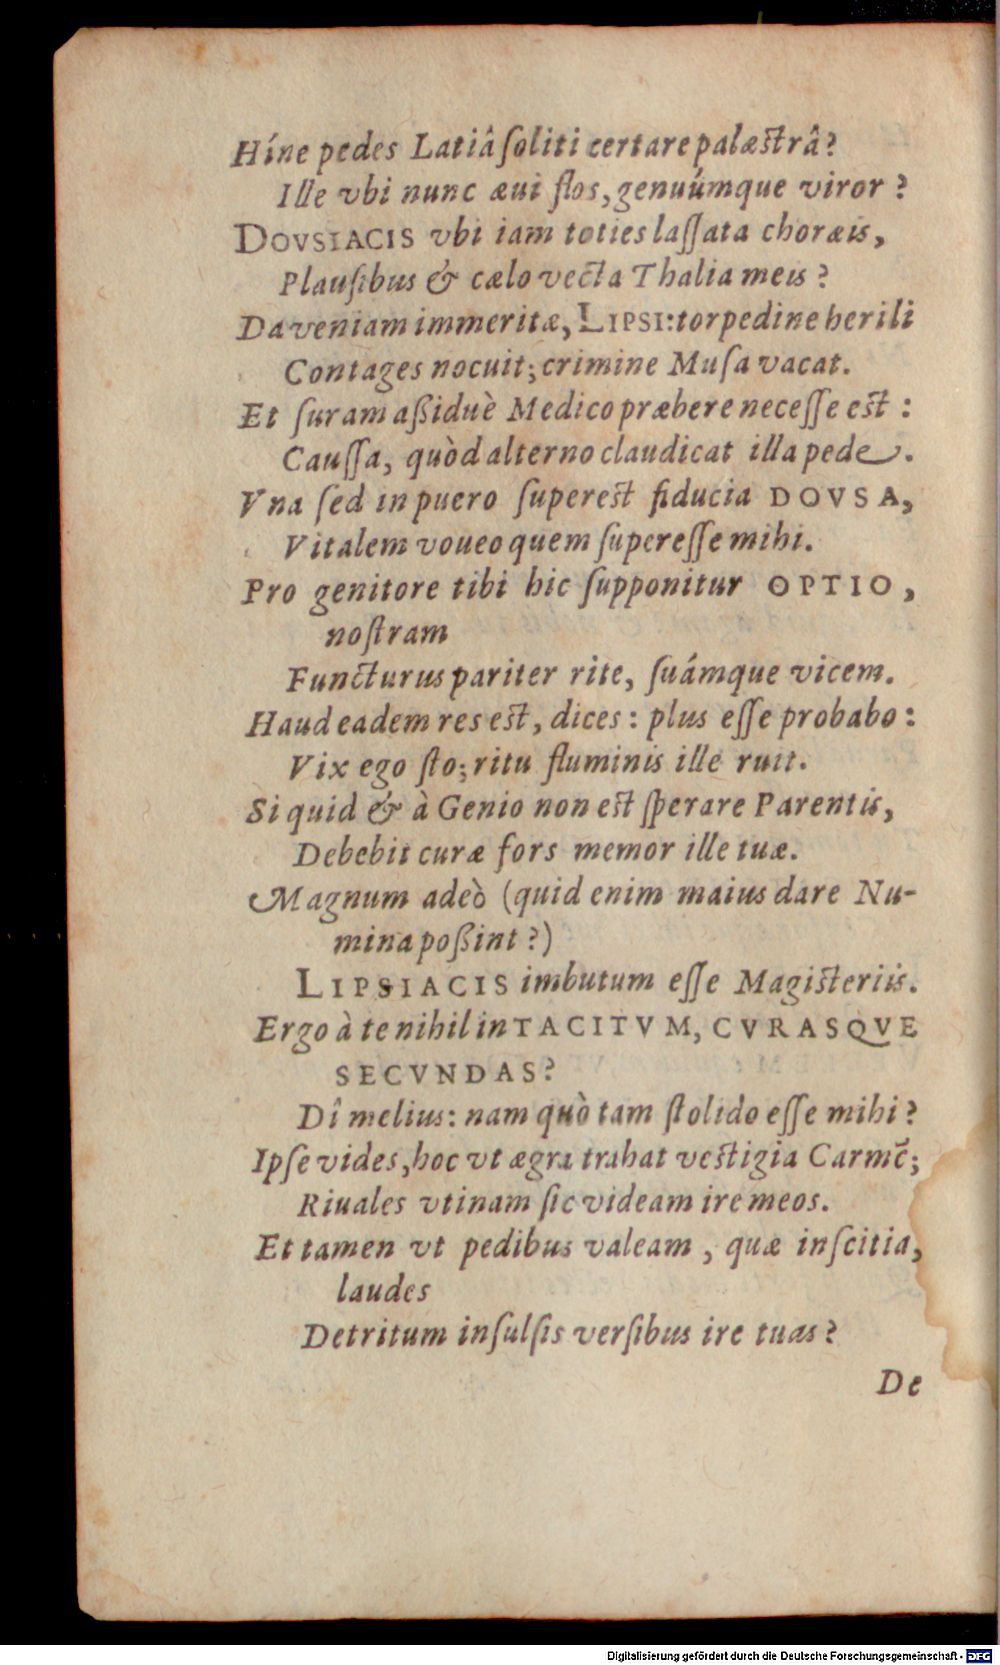 Híne pedes Latiâ ſoliti certare palæſtrâ?
Ille vbi nunc æui flos, genuúmque viror?
DOVSIACIS vbi iam toties laſſata choræis,
Plauſibus & cælo vecta Thalia meis?
Da veniam immeritæ, LIPSI: torpedine herili
Contages nocuit; crimine Muſa vacat.
Et ſuram aßiduè Medico præbere neceſſe eſt:
Cauſſa, quòd alterno claudicat illa pede.
Vna ſed in puero ſupereſt fiducia DOVSA,
Vitalem voueo quem ſupereſſe mihi.
Pro genitore tibi hic ſupponitur OPTIO,
noſtram
Functurus pariter rite, ſuámque vicem.
Haud eadem res eſt, dices: plus eſſe probabo:
Vix ego ſto; ritu fluminis ille ruit.
Si quid & à Genio non eſt ſperare Parentis,
Debebit curæ fors memor ille tuæ.
Magnum adeò (quid enim maius dare Nu-
mina poßint?)
LIPSIACIS imbutum eſſe Magiſteriis.
Ergo à te nihil in TACITVM, CVRASQVE
SECVNDAS?
Dî melius: nam quò tam ſtolido eſſe mihi?
Ipſe vides, hoc vt ægra trahat veſtigia Carmē;
Riuales vtinam ſic videam ire meos.
Et tamen vt pedibus valeam, quæ inſcitia,
laudes
Detritum inſulſis verſibus ire tuas?
De
Digitalisierung gefördert durch die Deutsche Forschungsgemeinschaft - DFG